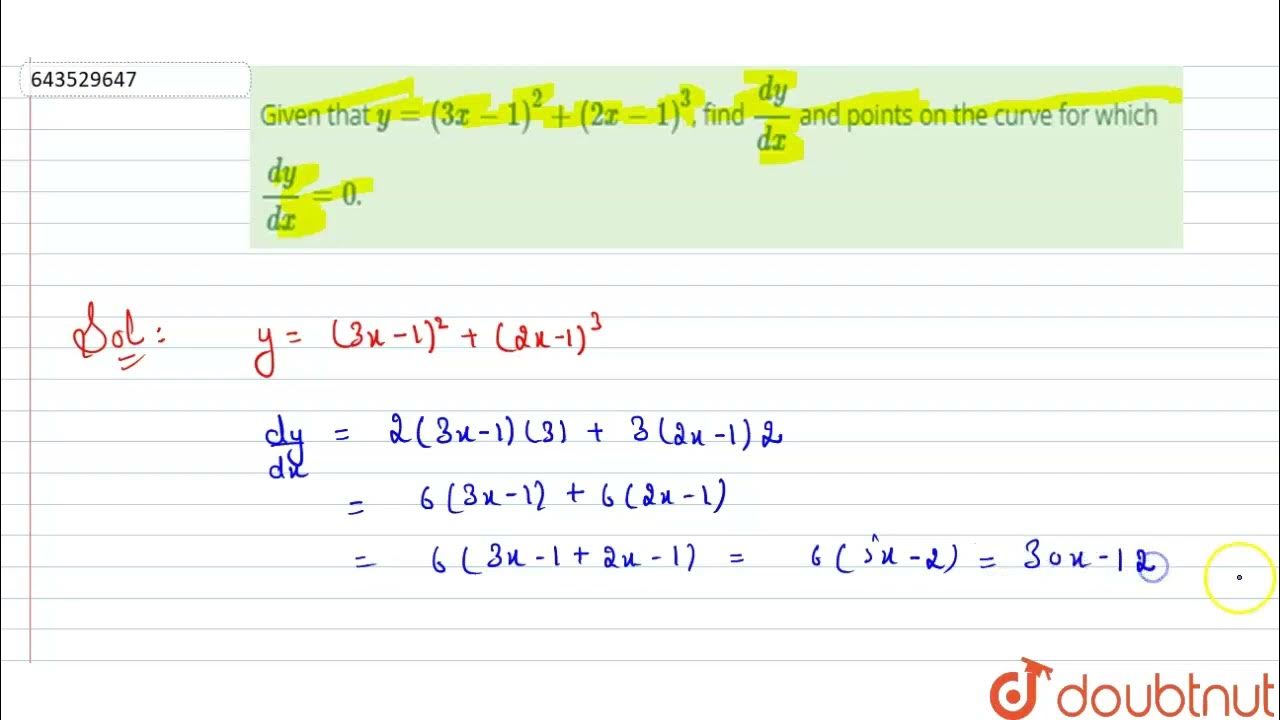 643529647
Given that y = (3x − 1)² + (2x − 1)³, find dy/dx and points on the curve for which
dy/dx = 0.
Sol: y = (3x-1)² + (2x-1)³
dy/dx = 2(3x-1)(3) + 3(2x-1)2
= 6(3x-1) + 6(2x-1)
= 6(3x-1+2x-1) = 6(5x-2) = 30x-12
doubtnut